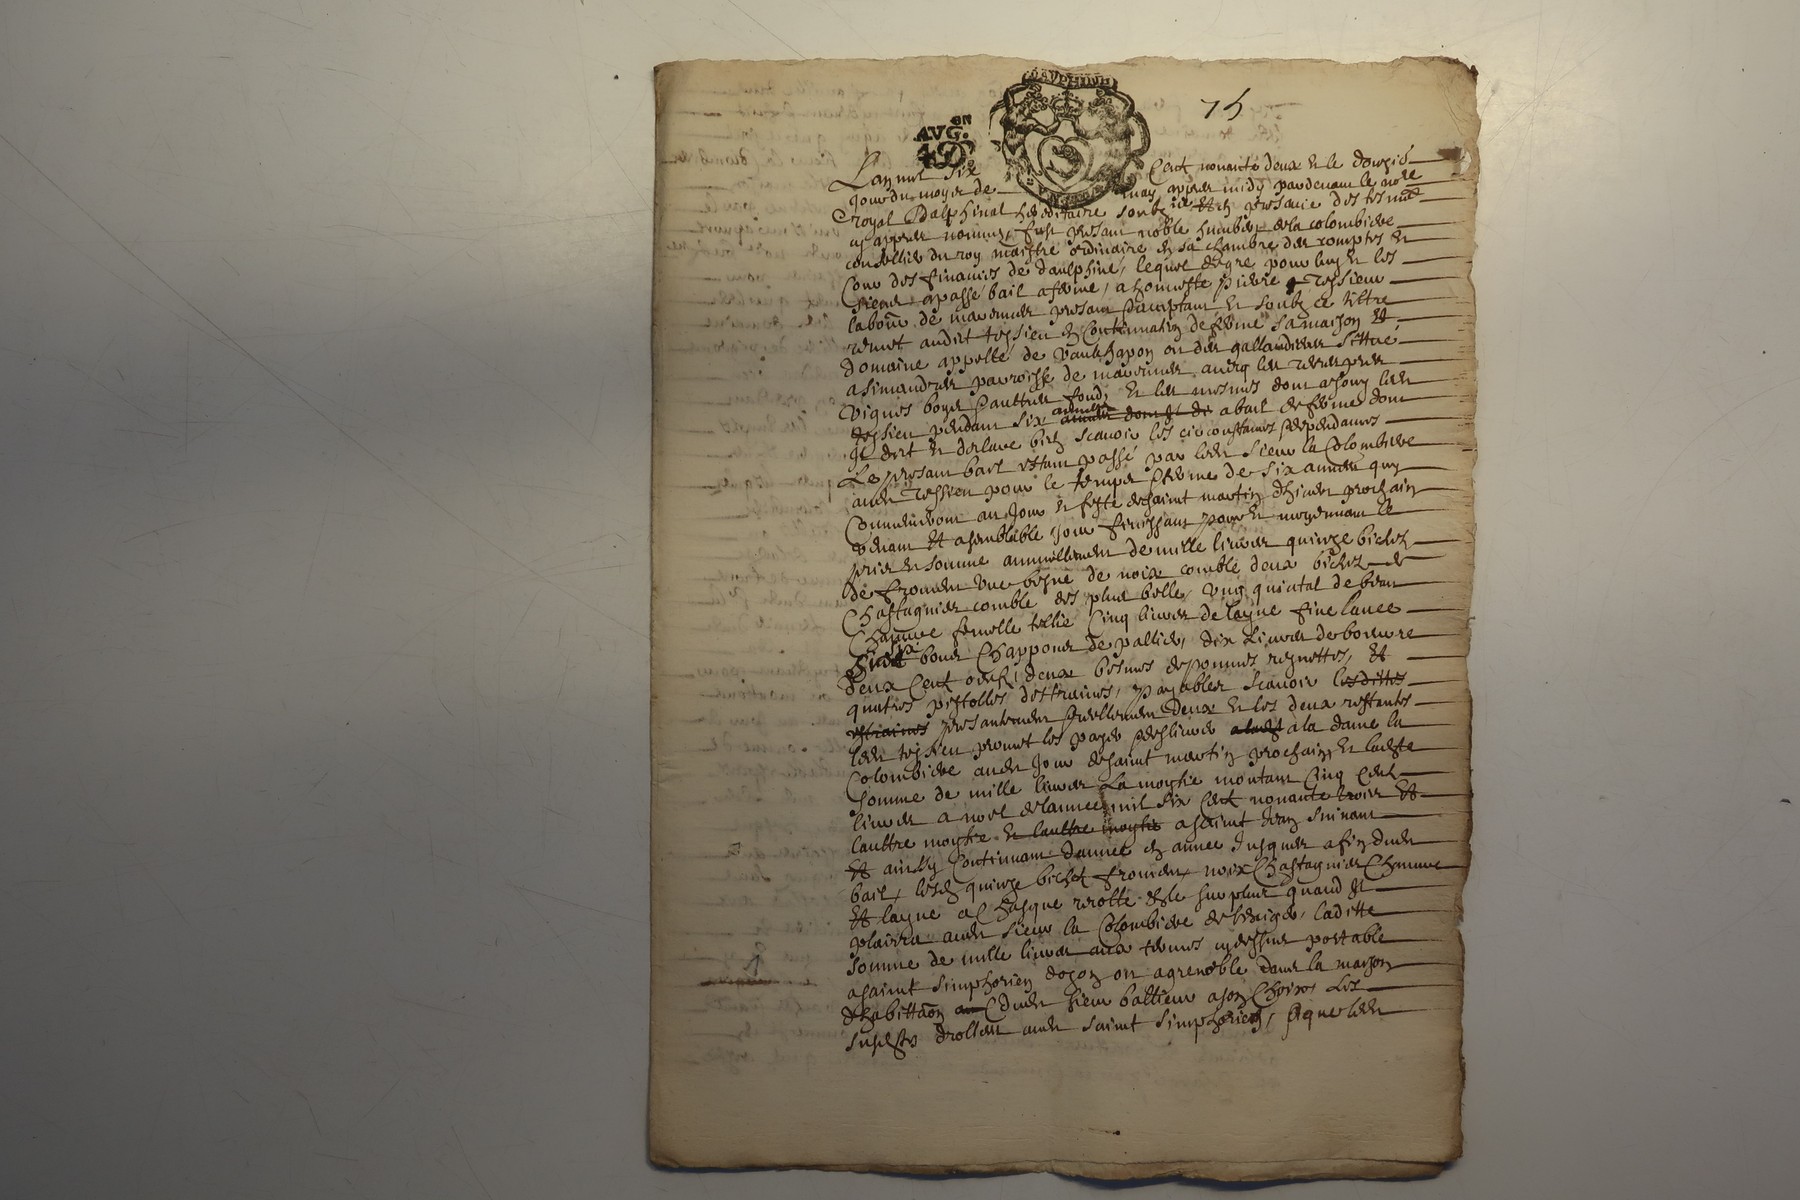 DAUPHINE
75
AVG.on
4 D
Lan mil six cent nonante deux et le douzie
jour du moys de may appres midy pardevant le no.re
royal Dalphinal hereditaire soubz.né et en presance des tesmo

as appres nommes, fust presant noble humbert de la colombiere
conseillier du roy maistre ordinaire en sa chambre des comptes et
Cour des finances de daulphiné, lequel de gre pour luy et les
siens a passé bail a ferme, a honneste pierre Tessieu
labour. de presant et acceptant et soubz ce tiltre
remet audit tessieu en Continuation de ferme sa maison et
domaine appellé de ou des gallandieres sittué
a simandres parroisse de avecq les terres pres
vignes boys et auttres fondz et les mesmes dont a jouy led
tessieu pendant six années a bail de ferme dont
il dict et declare bien scavoir les circonstances et dependances
Le presant bail estant passé par led sieur la Colombiere
aud Tessieu pour le temps et terme de six années quy
Commenceront au jour et feste de saint martin dhiver prochain
venant et a semblable jour finissant pour et moyennant le
prix et somme annuellement de mille livres quinze bichetz
de froment une besne de noix comble deux bichetz de
Chastagnies comble des plus belle, ung quintal de beau
Chanvre femelle tellié Cinq livres de layne fine lavee
six bons Chappons de pallier, dix livres de beurre
deux Cent oeufs, deux besnes de pommes reynettes, et
quattre pistolles destraines, payables scavoir lesdittes
estraines presantement et reellement deux et les deux restantes
led tessieu promet les payer et deslivrer a la dame la
Colombiere aud jour de saint martin prochain et ladite
somme de mille livres La moytie montant Cinq Cent
livres a noel de lannee mil six Cent nonante trois et
lauttre moytie et lauttre moytie a saint Jean suivant
et ainsy Continuant dannee en annee Jusques a fin dud
bail, lesd quinze bichet froment, noix Chastagnies Chanvre
et layne a Chasque recolte et le surplus quand il
plairra aud sieur la Colombiere de lexiger, laditte
somme de mille livres aux termes cy dessus portable
a saint simphorien dozon ou a grenoble dans la maison
dhabitta.on dud sieur bailleur a son Choix, Les
aud saint simphorien, et que led